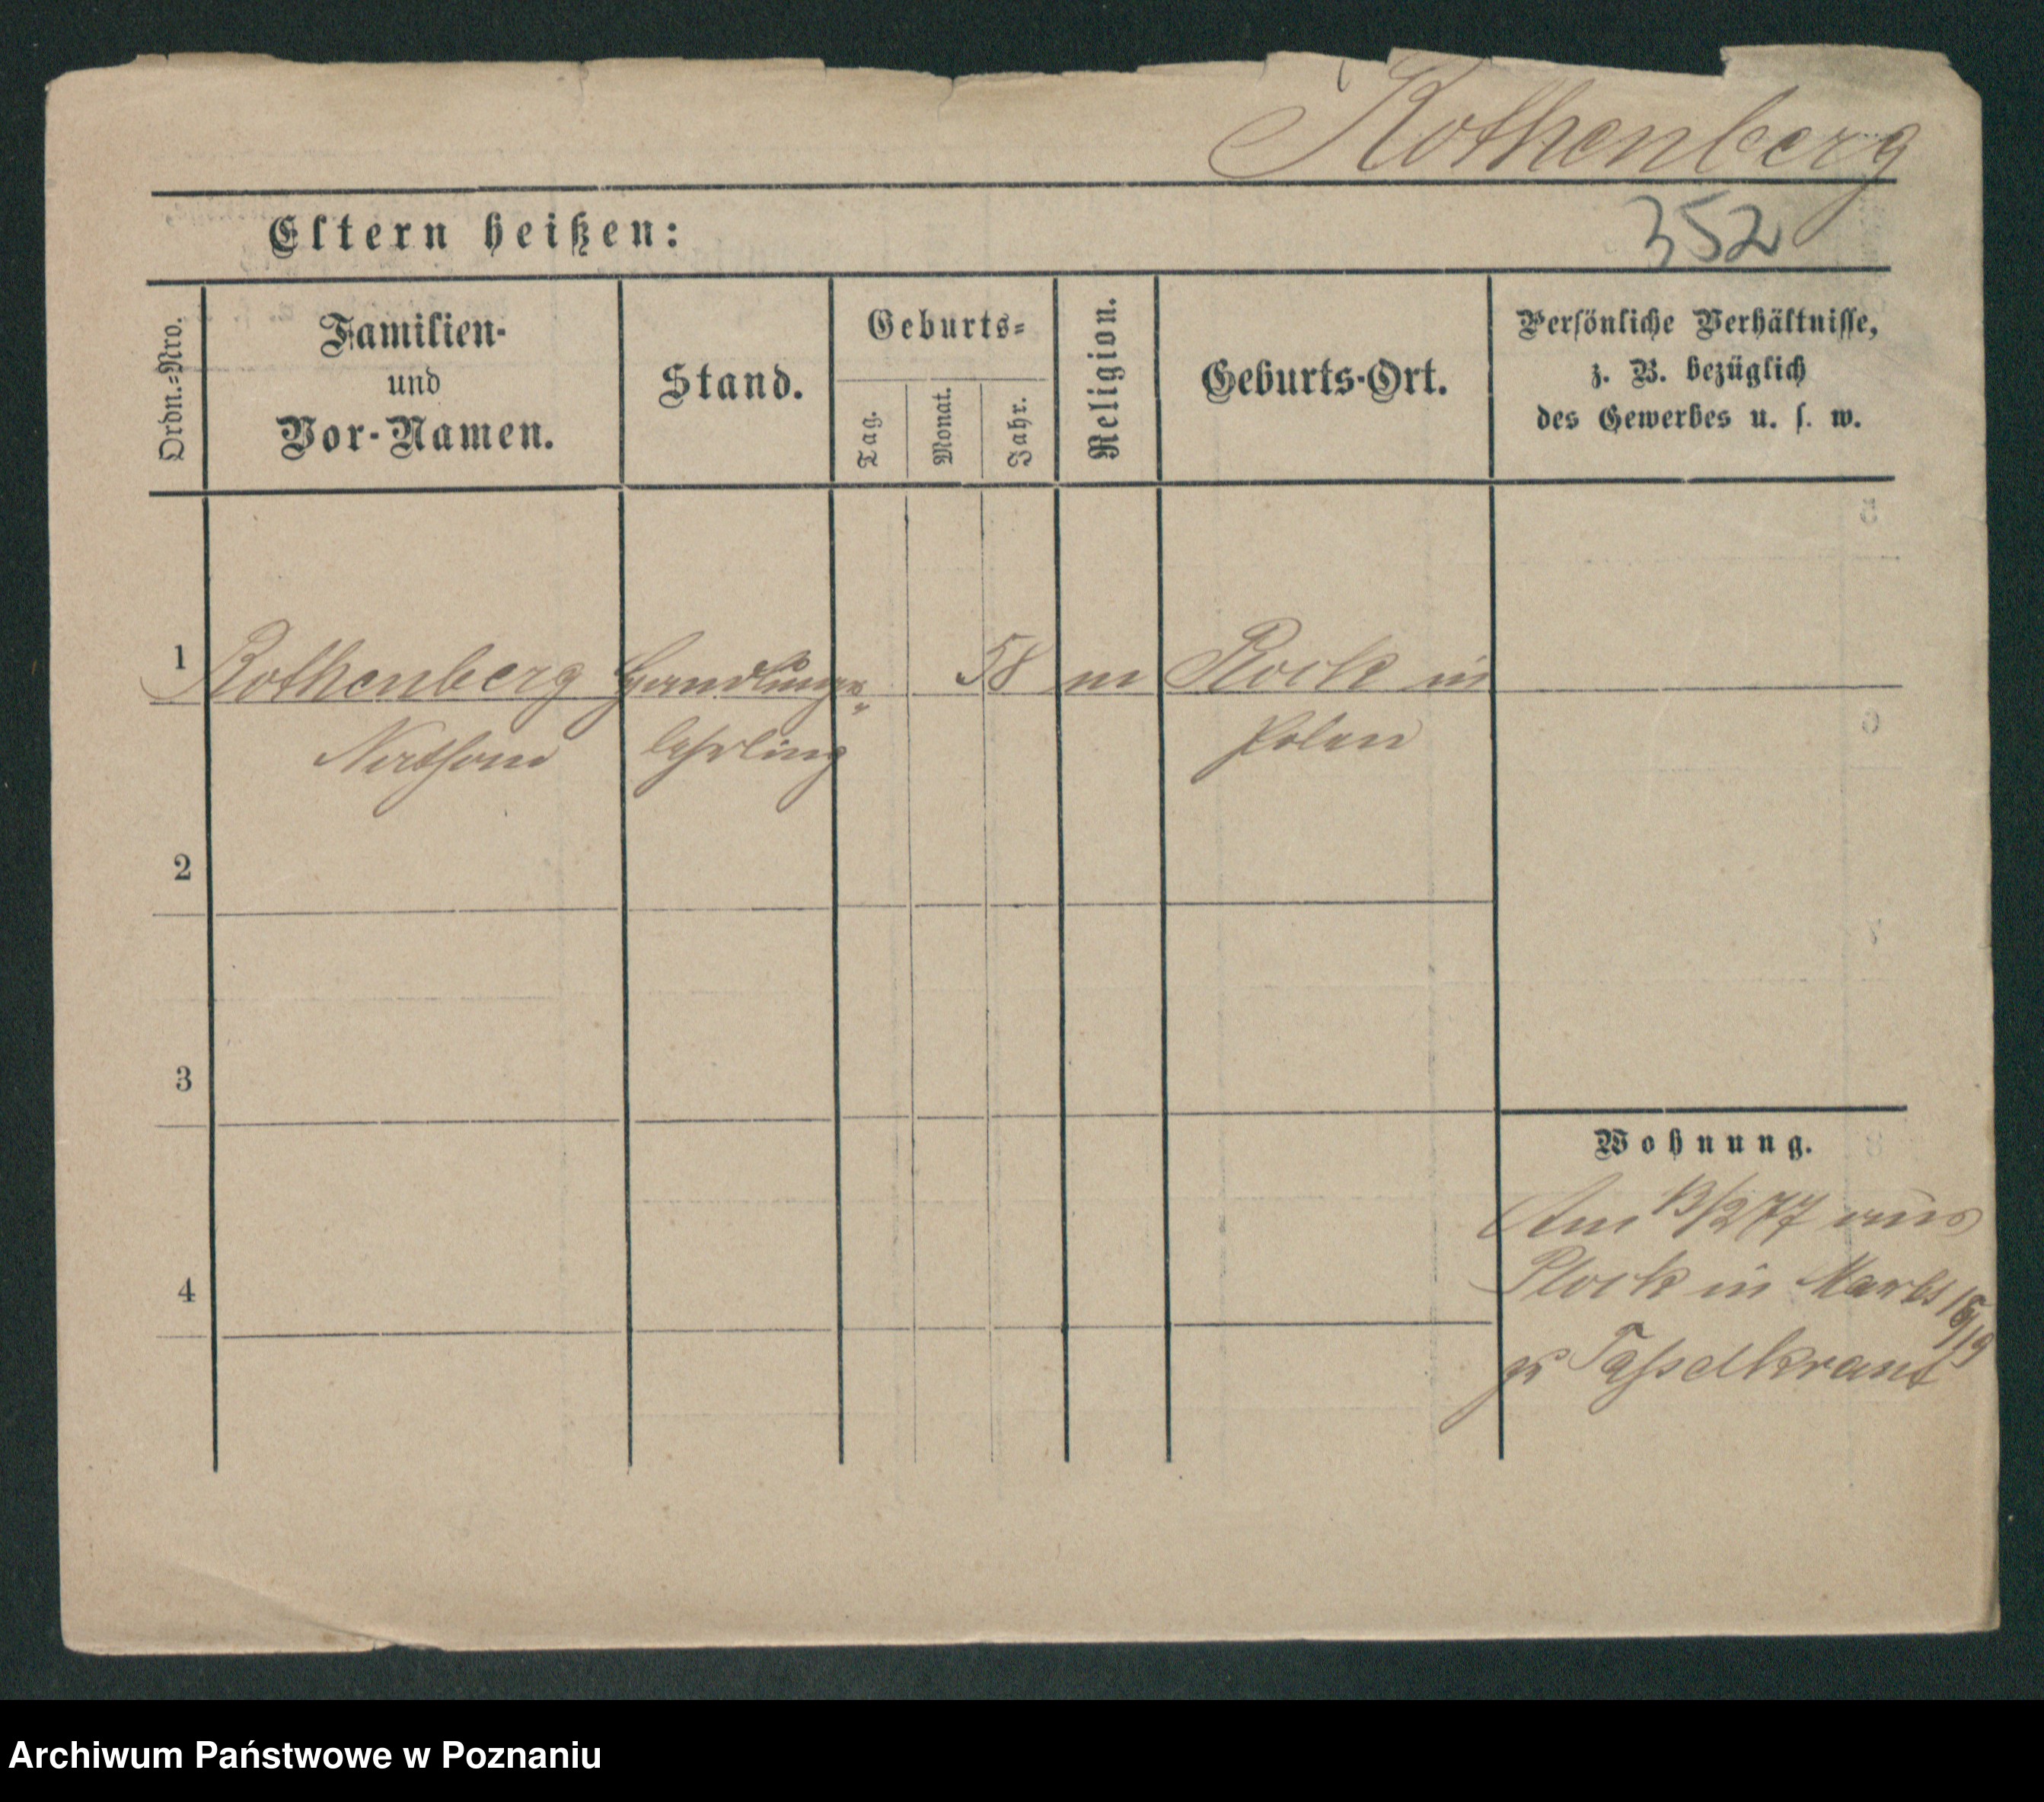 Rothenberg
Eltern heißen:
352
Ordn.-Nro.
Familien-
und
Vor-Namen.
Stand.
Geburts-
Tag.
Monat.
Jahr.
Religion.
Geburts-Ort.
Persönliche Verhältnisse,
z. B. bezüglich
des Gewerbes u. s. w.
1
Rothenberg Handlungs- 58 m Plock in
Nathan lehrling Polen
2
3
4
Wohnung.
Am 13/2 77 aus
Plock in Markt
Archiwum Państwowe w Poznaniu